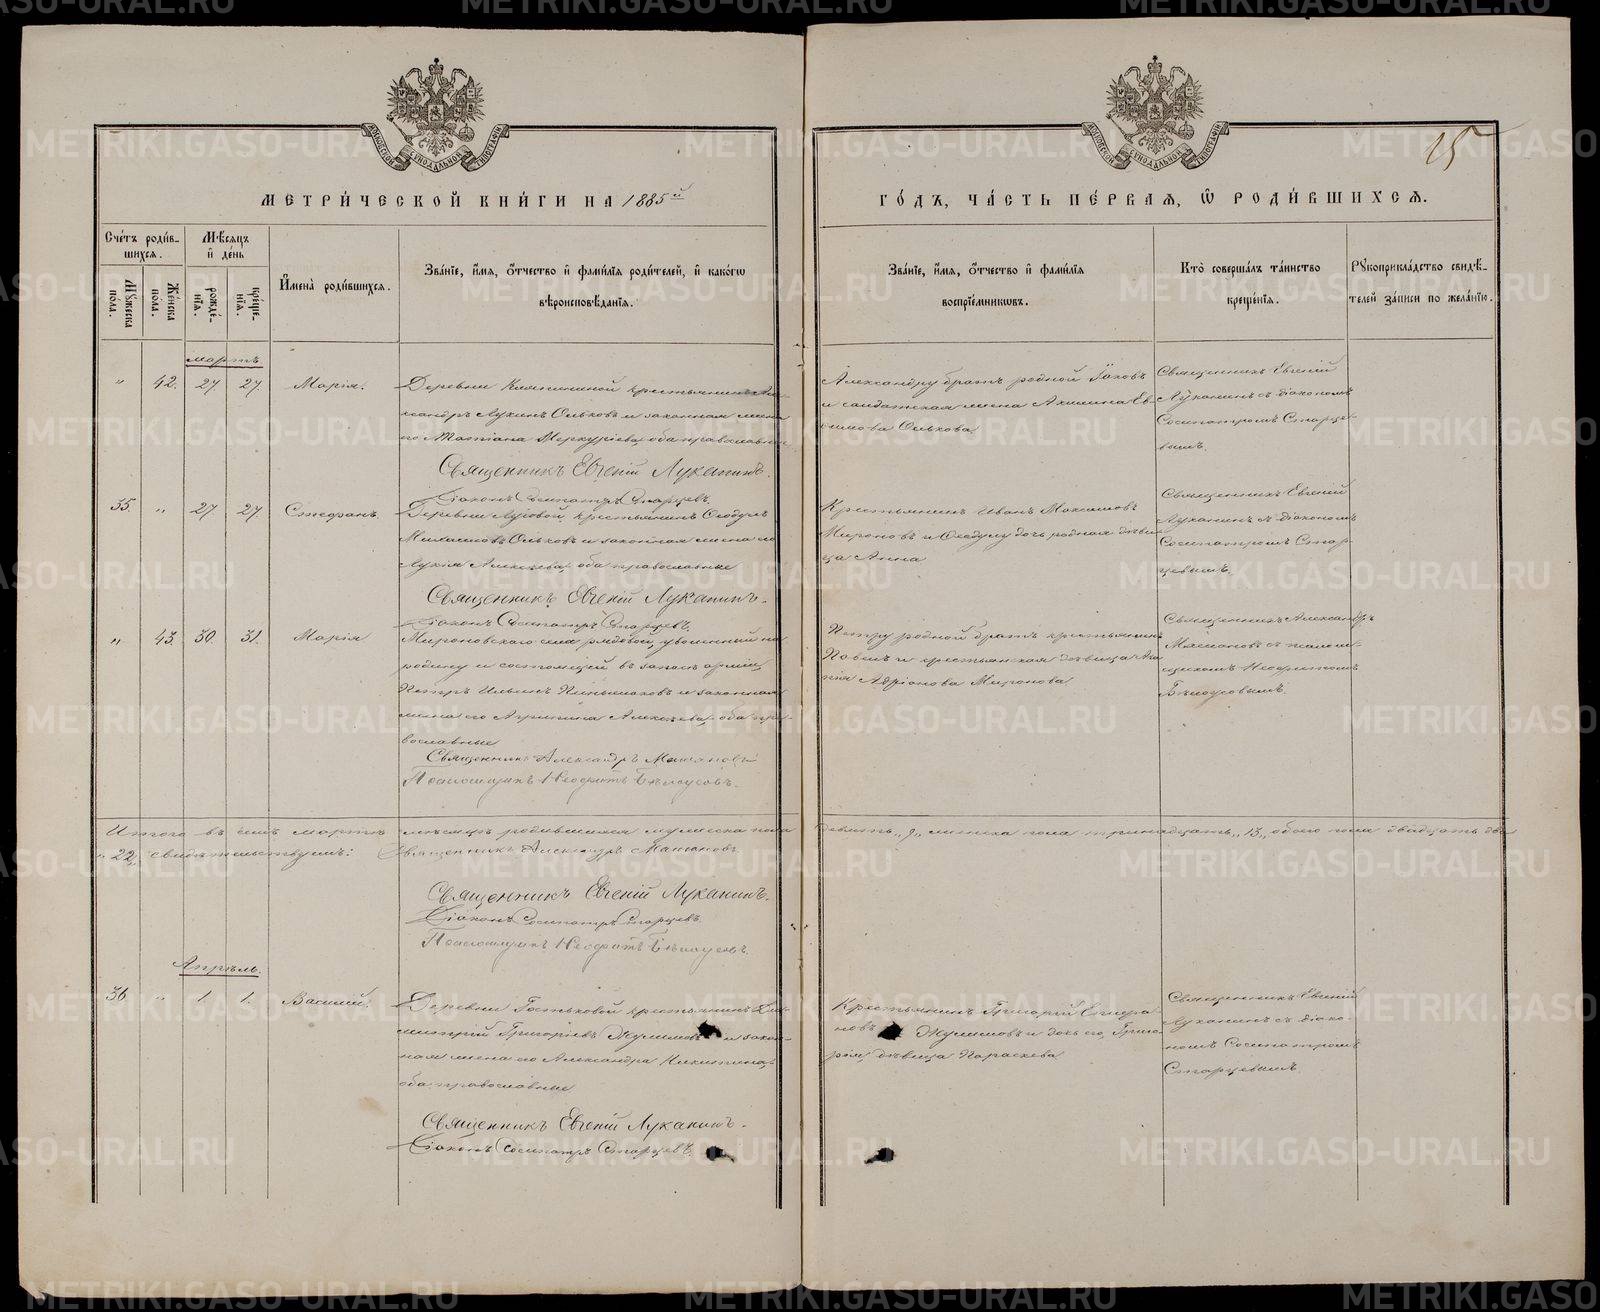 15
МЕТРИ́ЧЕСКОЙ КНИ́ГИ НА 1885й
ГО́ДЪ, ЧА́СТЬ ПЕ́РВАѦ, Ѡ РОДИ́ВШИХСѦ.
Сче́тъ роди́в-
шихсѧ.
Мꙋ́жеска по́ла.
Же́нска по́ла.
Мѣ́сѧцъ
и҆ де́нь
рожде́-
нїѧ.
креще́-
нїѧ.
И҆мена̀ роди́вшихсѧ.
Зва́нїе, и҆́мѧ, ѻ҆́тчество и҆ фами́лїѧ роди́телей, и҆ како́гѡ
вѣроисповѣ́данїѧ.
Зва́нїе, и҆́мѧ, ѻ҆́тчество и҆ фами́лїѧ
воспрїе́мникѡвъ.
Кто̀ соверша́лъ та́инство
креще́нїѧ.
Рꙋкоприкла́дство свидѣ́-
телей за́писи по жела́нїю.
Мартъ.
" 42. 27 27. Марія.
Деревни крестьянинъ Але-
ксандръ Лукинъ Ольковъ и законная жена
его Татіана Меркуріева, оба православные
Священникъ Евгеній Луканинъ.
Діаконъ Сосипатръ Старцевъ.
Александру братъ родной Іаковъ
и солдатская жена Акилина Ев-
фимова Олькова.
Священникъ Евгеній
Луканинъ съ діакономъ
Сосипатромъ Старце-
вымъ.
35. " 27. 27. Стефанъ.
Деревни Луговой, крестьянинъ Ѳеодулъ
Ольковъ и законная жена его
Лукія Алексѣева, оба православные
Священникъ Евгеній Луканинъ.
Діаконъ Сосипатръ Старцевъ.
Крестьянинъ Иванъ Максимовъ
Мироновъ и Ѳеодулу дочь родная дѣви-
ца Анна
Священникъ Евгеній
Луканинъ съ діакономъ
Сосипатромъ Стар-
цевымъ.
" 43. 30. 31. Марія
Мироновскаго села рядовой, уволенный на
родину и состоящій въ запасѣ арміи,
Петръ Ильинъ и законная
жена его Агрипина Алексѣева, оба пра-
вославные
Священникъ Александръ
Псаломщикъ Неофитъ Бѣлоусовъ.
Петру родной братъ крестьянинъ
Павелъ и крестьянская дѣвица
Адріанова Миронова
Священникъ Александръ
съ псалом-
щикомъ Неофитомъ
Бѣлоусовымъ.
Итого въ семъ мартѣ мѣсяцѣ родившихся мужеска пола девять „9„ женска пола тринадцать „13„ обоего пола двадцать два
„22„ свидѣтельствуемъ: Священникъ Александръ
Священникъ Евгеній Луканинъ.
Діаконъ Сосипатръ Старцевъ.
Псаломщикъ Неофитъ Бѣлоусовъ.
Апрѣль.
36 " 1. 1. Василій.
Деревни Гостьковой крестьянинъ Ди-
митрій Григоріевъ и закон-
ная жена его Александра Никитина,
оба православные
Священникъ Евгеній Луканинъ.
Діаконъ Сосипатръ Старцевъ.
Крестьянинъ Григорій
и дочь его, Григо-
рія, дѣвица Параскева
Священникъ Евгеній
Луканинъ съ діако-
номъ Сосипатромъ
Старцевымъ.
METRIKI.GASO-URAL.RU